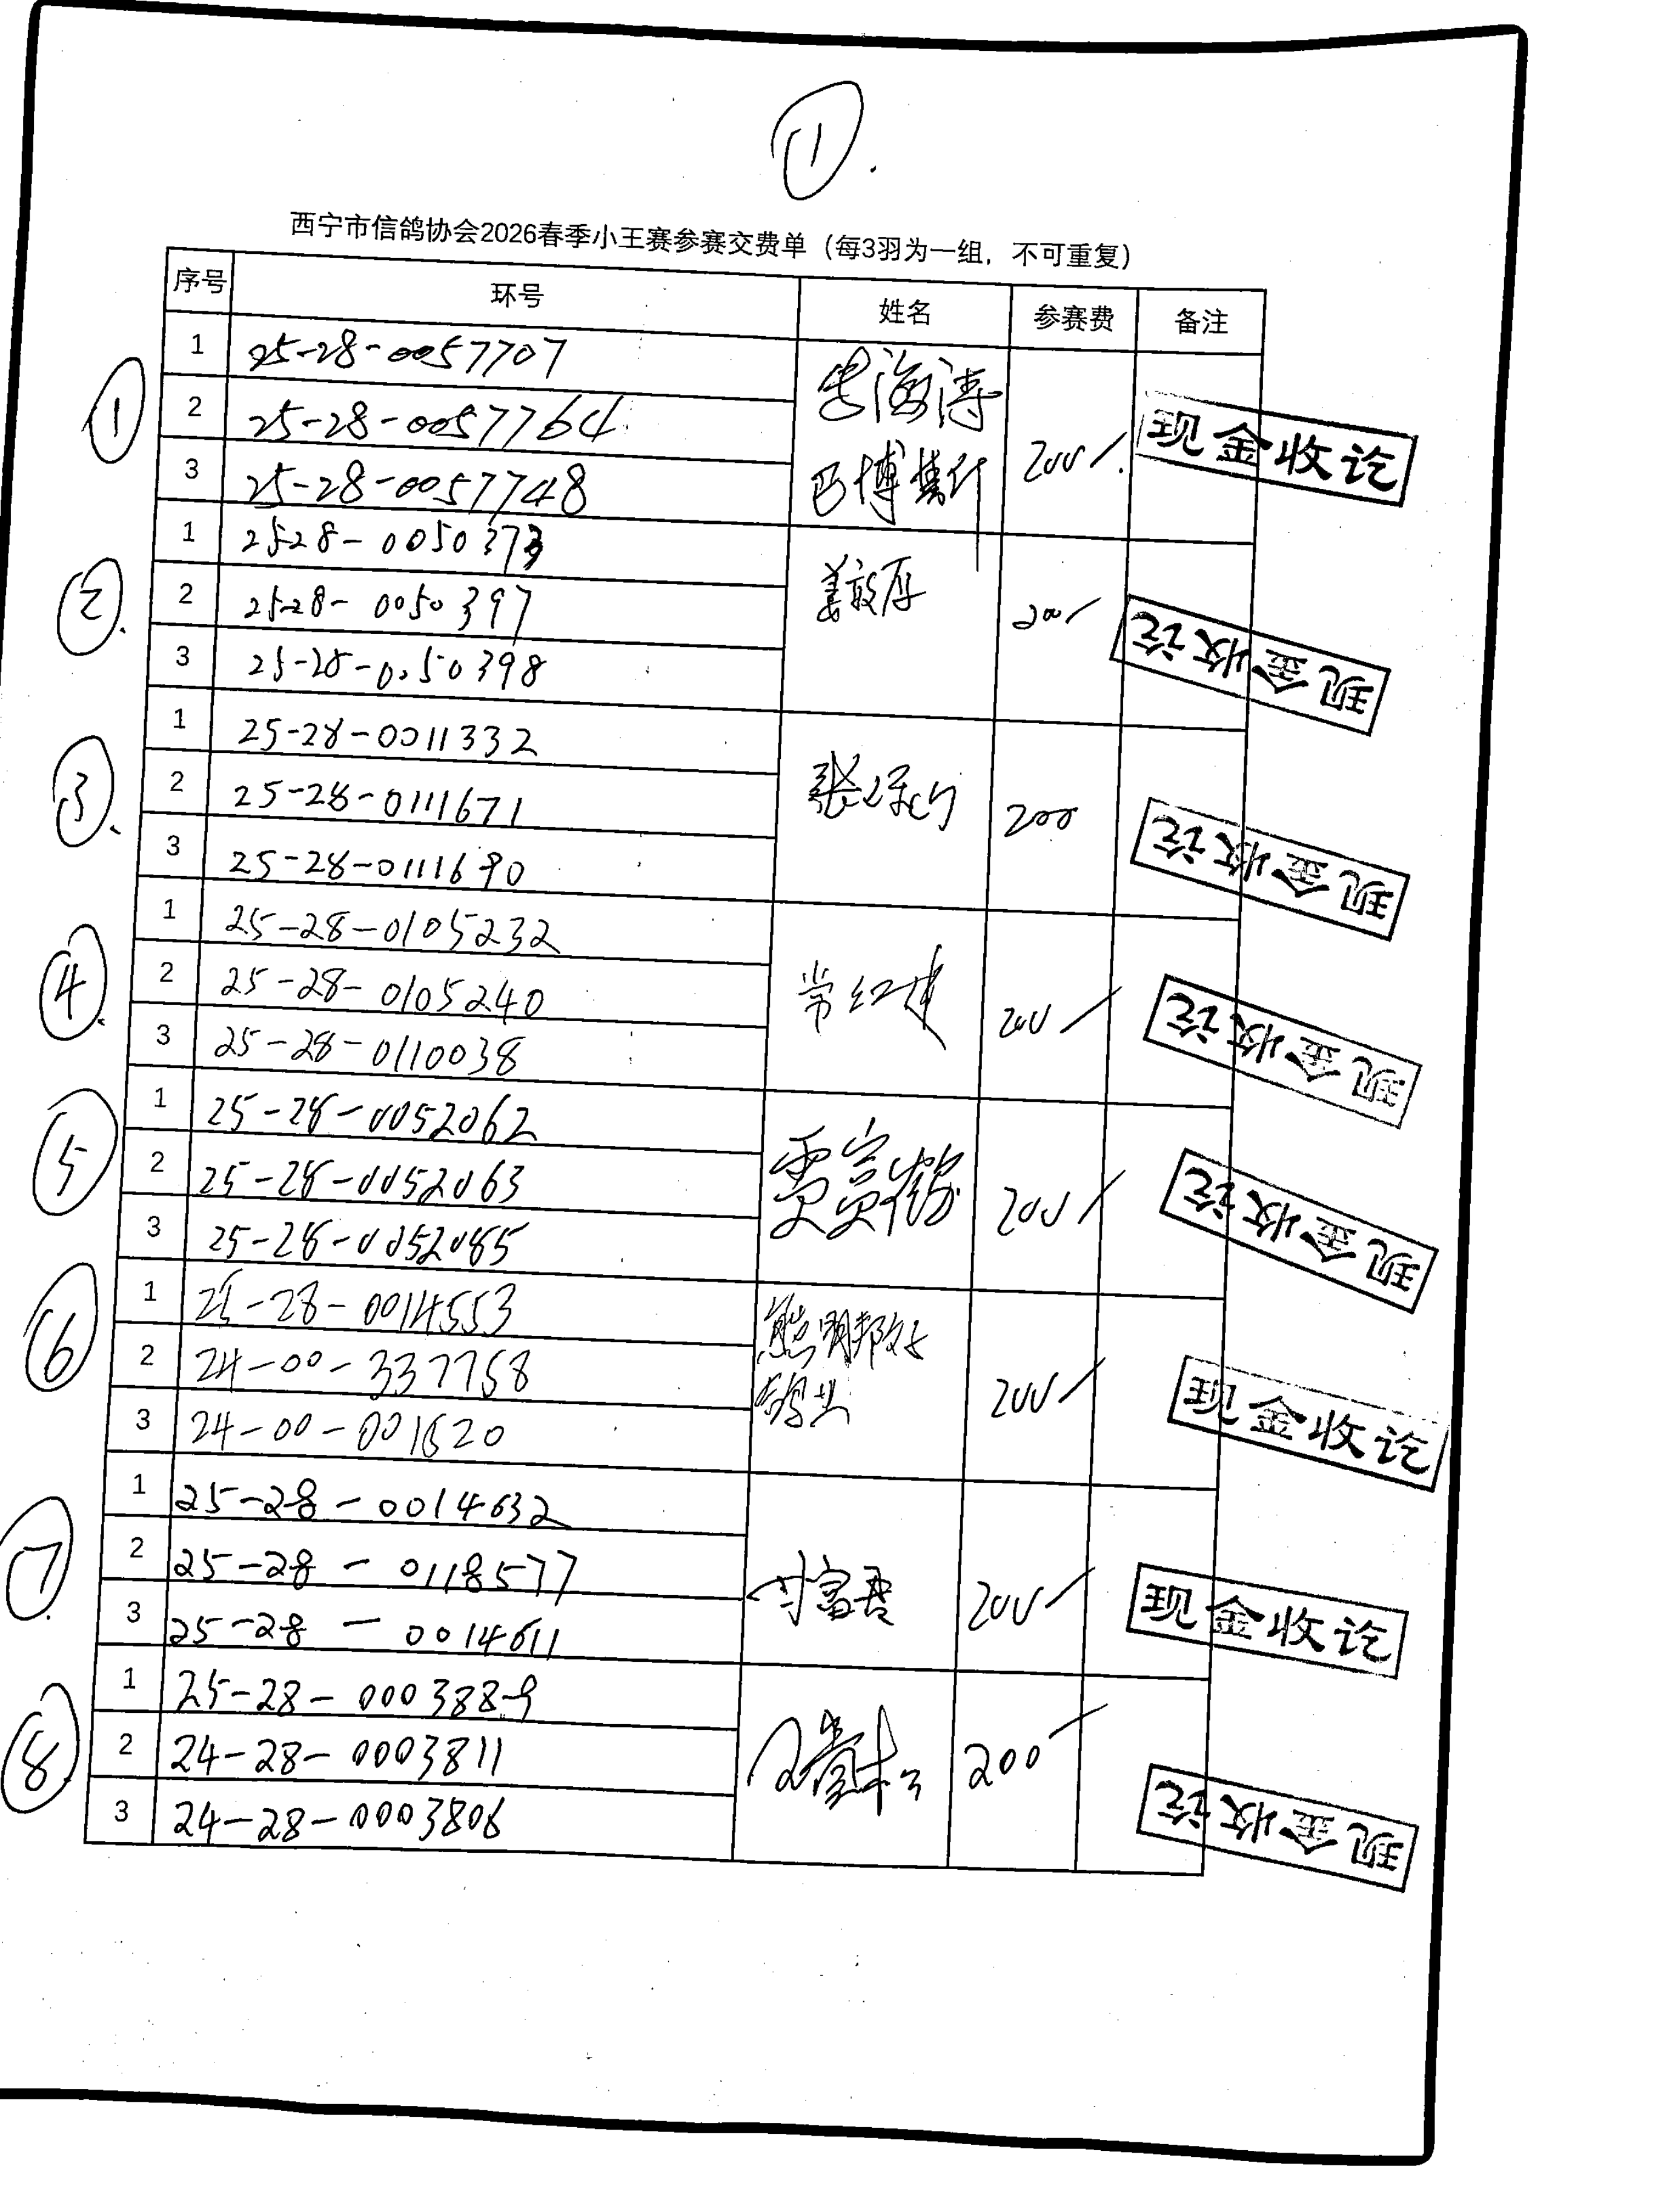 ①
西宁市信鸽协会2026春季小王赛参赛交费单（每3羽为一组，不可重复）
序号 环号 姓名 参赛费 备注
①
1 25-28-0057707
2 25-28-0057764
3 25-28-0057748
李海涛
巴博 200 现金收讫
②
1 25-28-0050373
2 25-28-0050397
3 25-28-0050398
姜敬厚 200 现金收讫
③
1 25-28-0011332
2 25-28-0111671
3 25-28-0111690
张 200 现金收讫
④
1 25-28-0105232
2 25-28-0105240
3 25-28-0110038
常红建 200 现金收讫
⑤
1 25-28-0052062
2 25-28-0052063
3 25-28-0052085
贾富 200 现金收讫
⑥
1 25-28-0014553
2 24-00-337758
3 24-00-001620
熊明邦
鸽业 200 现金收讫
⑦
1 25-28-0014632
2 25-28-0118577
3 25-28-0014611
富君 200 现金收讫
⑧
1 25-28-0003889
2 24-28-0003811
3 24-28-0003806
200 现金收讫